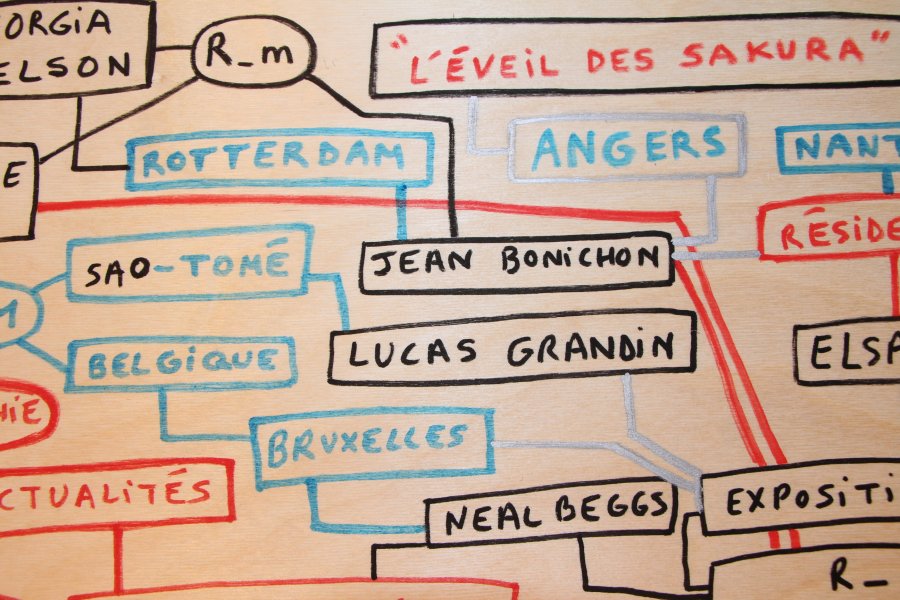 ORGiA
ELSON
R_m
"L'ÉVEiL DES SAKURA"
E
ROTTERDAM
ANGERS
NANT
SAO-TOMÉ
JEAN BONiCHON
RÉSIDE
M
LUCAS GRANDiN
ELSA
BELGiQUE
HiE
BRUXELLES
CTUALiTÉS
NEAL BEGGS
EXPOSiTi
R_